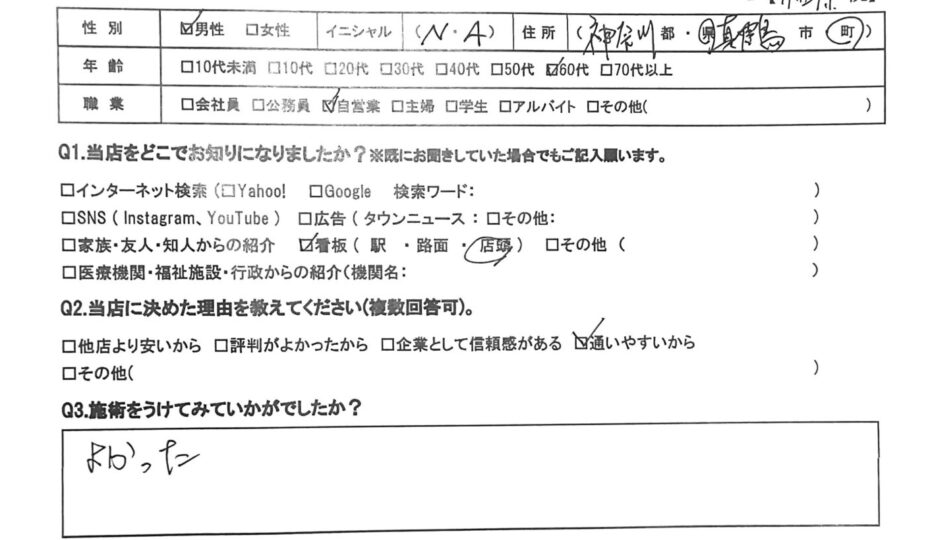 性別 ☑男性 □女性 イニシャル (N・A) 住所 (神奈川 都・県 真鶴 市 町)
年齢 □10代未満 □10代 □20代 □30代 □40代 □50代 ☑60代 □70代以上
職業 □会社員 □公務員 ☑自営業 □主婦 □学生 □アルバイト □その他( )
Q1.当店をどこでお知りになりましたか？※既にお聞きしていた場合でもご記入願います。
□インターネット検索 (□Yahoo! □Google 検索ワード: )
□SNS ( Instagram、YouTube ) □広告 ( タウンニュース : □その他: )
□家族・友人・知人からの紹介 ☑看板 ( 駅 ・路面 ・店頭) □その他 ( )
□医療機関・福祉施設・行政からの紹介(機関名: )
Q2.当店に決めた理由を教えてください(複数回答可)。
□他店より安いから □評判がよかったから □企業として信頼感がある ☑通いやすいから
□その他( )
Q3.施術をうけてみていかがでしたか？
よかった